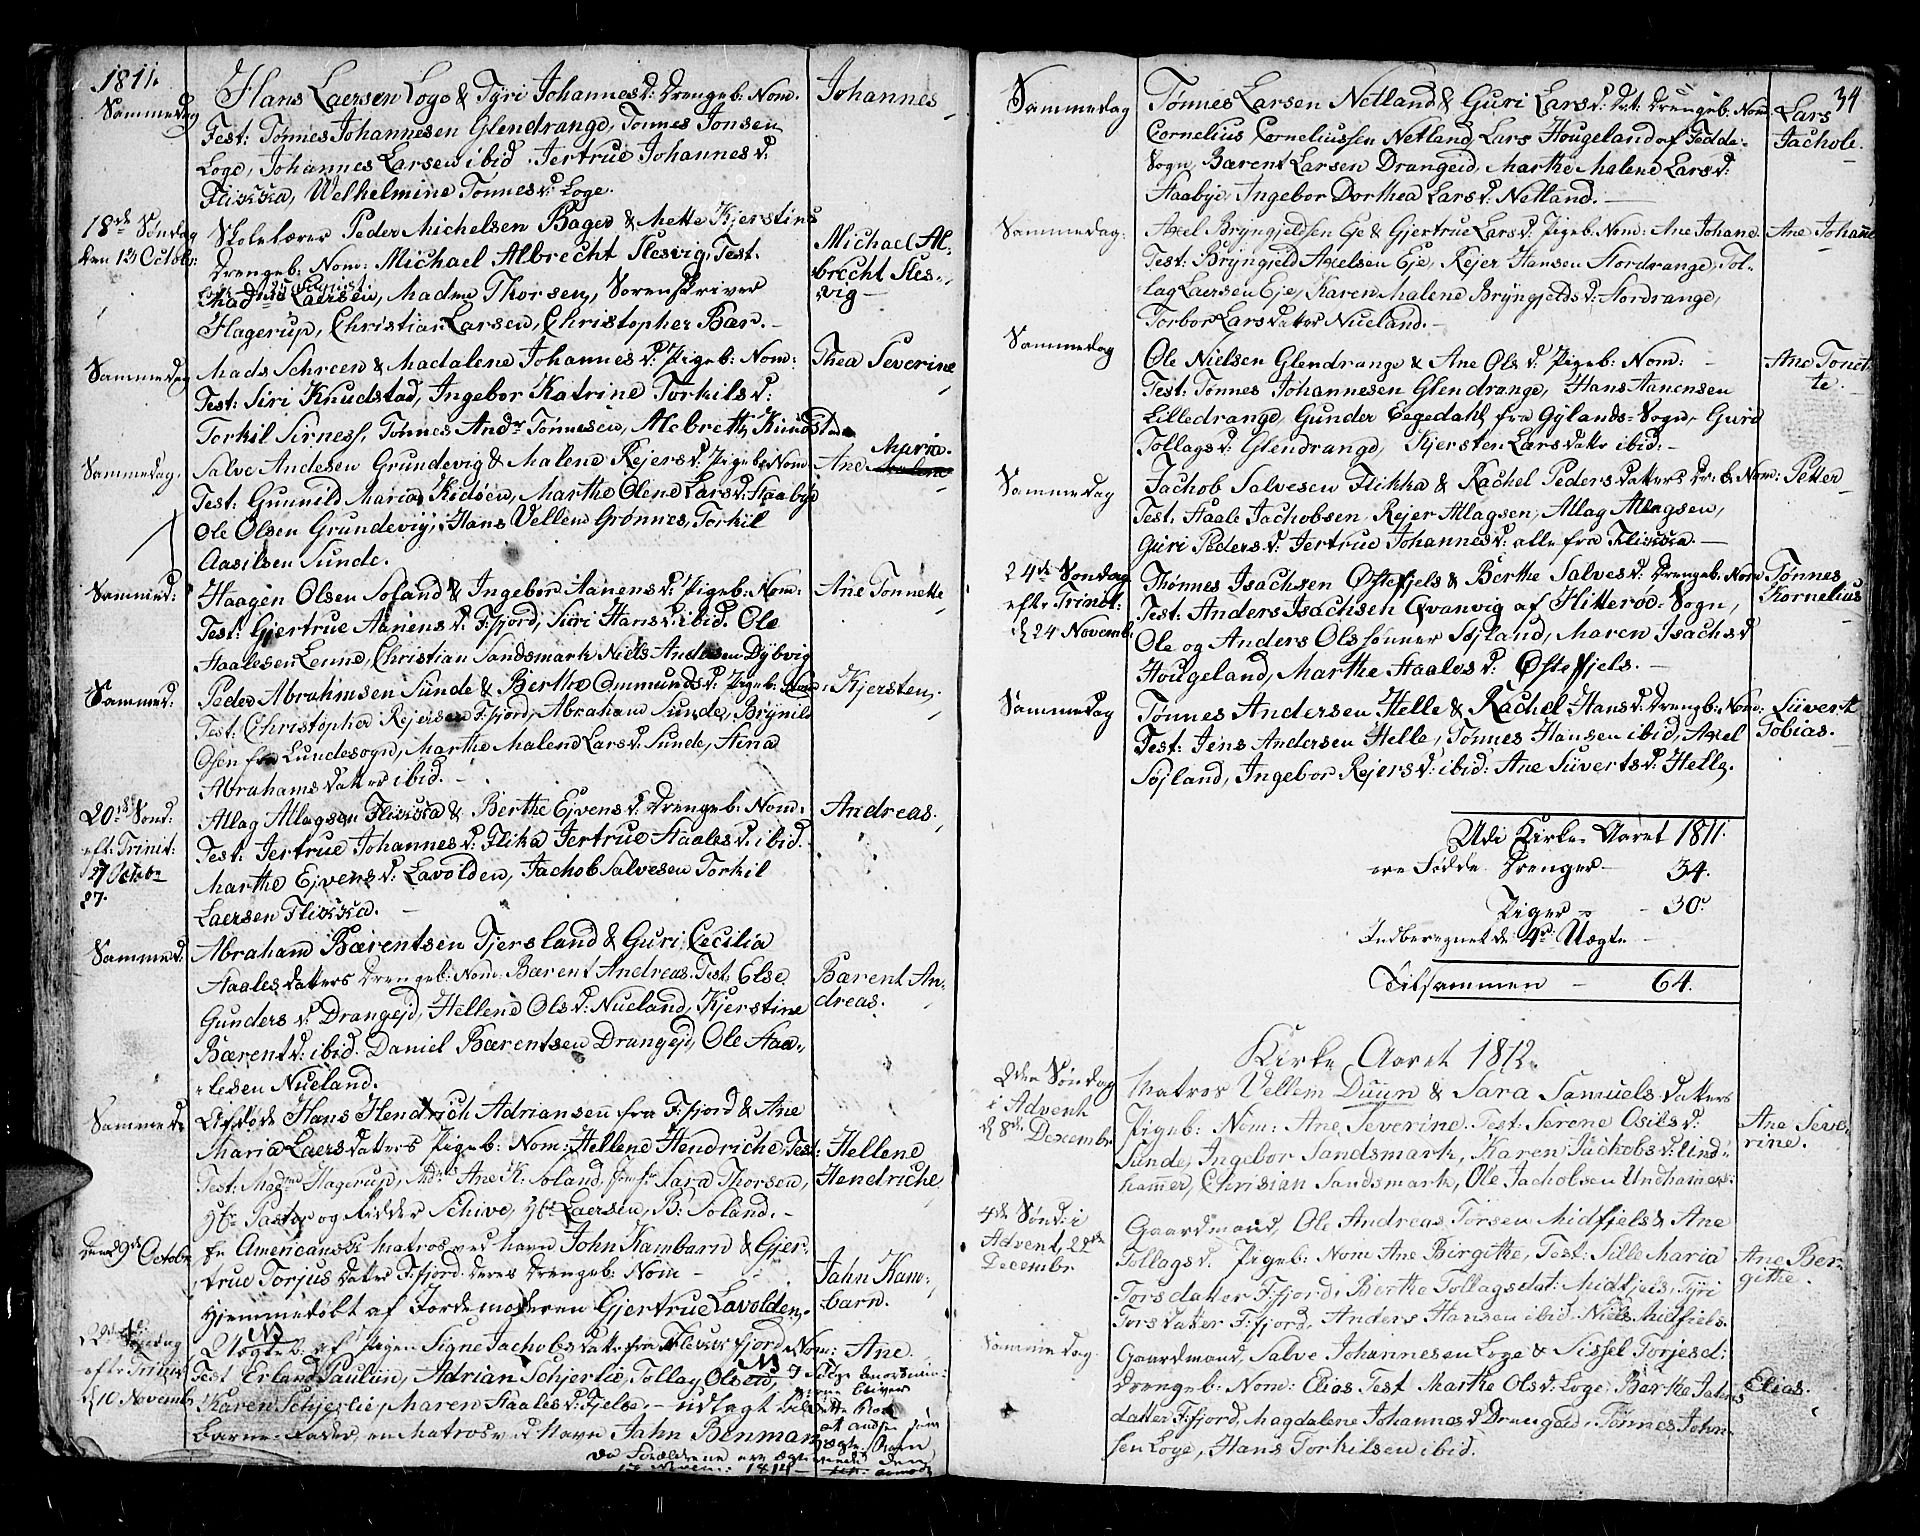 1811.
Sammedag
Hans Laersen Loge & Tyri Johannesd: Drengeb: Nom.
Johannes
Test: Tønnes Johannesen Glendrange, Tønnes Jonsen
Loge, Johannes Larsen ibid. Jertrue Johannesd:
Flikka, Welhelmine Tønnesd: Loge.
18de Søndag
den 13 Octobr:
Skolelærer Peder Michelsen Bager & Mette Kjerstine
Drengeb: Nom: Michael Albrecht Slesvig, Test.
Michael Al-
brecht Sles-
vig
Laersen, Madme Thorsen, Sorenskriver
Hagerup, Christian Larsen, Christopher Bær.
Sammedag
Mads Schreen & Madalene Johannesd: Pigeb: Nom:
Thea Severine
Test: Siri Knudstad, Ingebor Katrine Torkilsd:
Torkil Sirness, Tønnes Andr Tønnesen, Alebrette Knudstad
Sammedag.
Salve Andesen Grundevig & Malene Rejersd: Pigeb: Nom
Ane Marie
Test: Gunnild Maria Kidøen, Marthe Olene Larsd: Staabye
Ole Olsen Grundevig, Hans Vellem Grønnes, Torkil
Aasilsen Sunde.
Sammed:
Haagen Olsen Soland & Ingebor Aanensd: Pigeb: Nom:
Ane Tonnette
Test: Gjertrue Aanensd: F:fjord, Siri Hansd: ibid. Ole
Haalesen Lenne, Christian Sandsmark Niels Andesen Dybvig
Sammed:
Peder Abrahmsen Sunde & Berthe Ommundsd: Pigeb: Nom:
Kjersten.
Test: Christopher Rejersen F:fjord, Abraham Sunde, Brynild
Osen fra Lundesogn, Marthe Malene Larsd: Sunde, Anna
Abrahamsdatter ibid.
20de Sønd:
eft: Trinit:
27 Octobr
27.
Atlag Atlagsen Flikka & Berthe Ejvensd: Drengeb: Nom:
Andreas.
Test: Jertrue Johannesd: Flika Jertrue Haalesd: ibid.
Marthe Ejvensd: Lavolden, Jachob Salvesen Torkil
Laersen Flikka.
Sammed.
Abraham Bærentsen Tjersland & Guri Cecilia
Haalesdatters Drengeb: Nom: Bærent Andreas. Test: Else
Bærent An-
dreas.
Gundersd: Drangejd, Hellene Olsd: Nueland, Kjerstine
Bærentd: ibid. Daniel Bærentsen Drangejd, Ole Haa-
lesen Nueland.
Sammed:
Afdøde Hans Hendrich Adriansen fra F:fjord & Ane
Maria Laersdatters Pigeb: Nom: Hellene Hendriche, Test:
Hellene
Hendriche,
Test: Madme Hagerup, Ane K: Soland, Jomfr Sara Thorsen,
Hr Pastor og Ridder Schive, Hr Laersen, B: Soland.
Den 9de Octobr
En Americansk Matros ved Navn John Kambarn & Gjer-
true Torjusdatter F:fjord. deres Drengeb: Nom
Jahn Kam-
barn.
Hjemmedøbt af Jordemoderen Gjertrue Lavolden.
22de Søndag
efter Trinit:
d 10 Novembr
Uægteb: af Pigen Signe Jachobsdatter fra Flekkefjord, Nom: Ane
Test Erland Paulün, Adrian Schjerlie, Tollag Olsen,
Karen Schjerlie, Maren Haalesd: Fjelse. udlagt til
Barne-Fader, en Matros ved Navn Jahn Benman
34
Sammedag
Tønnes Larsen Netland & Guri Larsd: Dat: Drengeb: Nom
Lars
Jachob.
Cornelius Corneliussen Netland, Lars Hougeland af Fedde-
Sogn, Bærent Larsen Drangeid, Marthe Malene Larsd:
Staabye, Ingebor Dorthea Larsd: Netland.
Sammedag.
Axel Bryngjeldsen Eje & Gjertrue Larsd: Pigeb: Nom: Ane Johane.
Ane Johanne
Test: Bryngjeld Axelsen Eje, Rejer Hansen Stordrange, Tol-
lag Laersen Eje, Karen Malene Bryngjeldsd: Stordrange,
Torbor Larsdatter Nueland.
Sammedag
Ole Nielsen Glendrange & Ane Olsd: Pigeb: Nom:
Ane Tonet-
te.
Test: Tønnes Johannesen Glendrange, Hans Aanensen
Lilledrange, Gunder Eegedahl fra Gylands-Sogn, Guro
Tollagsd: Glendrange, Kjersten Larsdatr ibid:
Sammedag
Jachob Salvesen Flikka & Rachel Pedersdatters Dr: b: Nom:
Petter
Test: Haale Jachobsen, Rejer Atlagsen, Atlag Atlagsen,
Guri Pedersd: Jertrue Johannesd: alle fra Flikka.
24de Søndag
eftr Trinit:
d 24 Novemb:
Thønnes Isachsen Østefjels & Berthe Salvesd: Drengeb: Nom
Tønnes
Kornelius
Test: Anders Isachsen Qvanvig af Hitterøe-Sogn,
Ole og Anders Olssønner Søjland, Maren Isachsd
Hougeland, Marthe Haalesd: Østefjels.
Sammedag
Tønnes Andersen Helle & Rachel Hansd: Drengb: Nom:
Siivert
Tobias.
Test: Jens Andersen Helle, Tønnes Hansen ibid, Axel
Søjland, Ingebor Rejersd: ibid: Ane Siivertsd: Helle.
Udi Kirke-Aaret 1811.
ere Fødde Drenger 34.
Piger 30
Indberegnet de 4re Uægte
Tilsammen 64.
Kirke Aaret 1812.
2den Søndag
i Advent
d 8de Decembr
Matros Vellem Duun & Sara Samuelsdatters
Pigeb: Nom: Ane Severine. Test: Serene Osilsd:
Ane Seve-
rine.
Sunde, Ingebor Sandsmark, Karen Jachobsd: Lind-
hammer, Chrisian Sandsmark, Ole Jacholsen Undhamer.
4de Sønd: i
Advent, 22de
Decembr
Gaardmand, Ole Andreas Torsen Midfjels & Ane
Tollagsd. Pigeb: Nom Ane Birgithe, Test: Sille Maria
Ane Ber-
githe.
Torsdatter F:fjord, Berthe Tollagsdat: Midfjels, Tyri
Torsdatter F:fjord, Anders Hansen ibid. Niels Midfiels.
Sammedag.
Gaardmand, Salve Johannesen Loge & Sissel Torjesd:
Drengeb: Nom: Elias Test Marthe Olsd: Loge, Berthe Jahns
Elias.
datter F:fjord, Magdalene Johannesd Drangeid, Tønnes John-
sen Loge, Hans Torkilsen ibid.